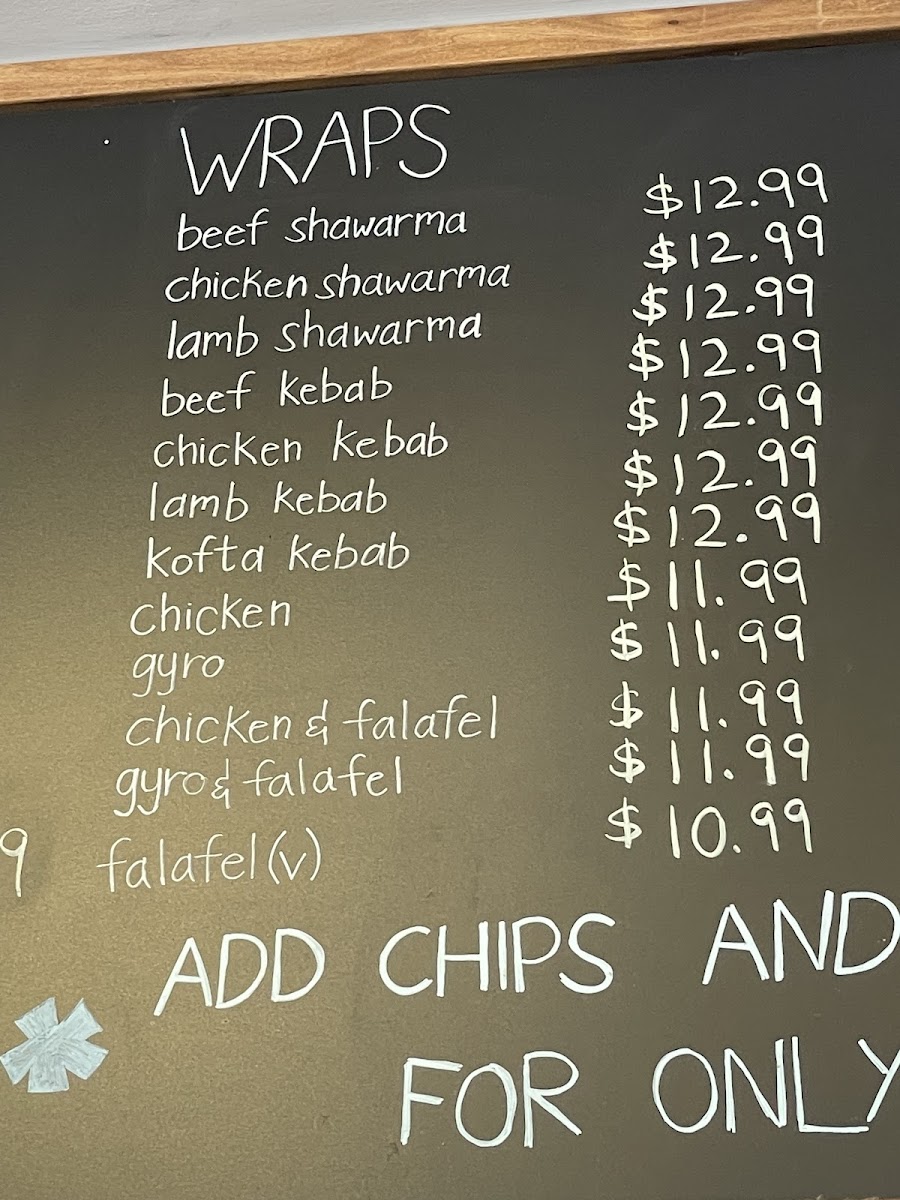 WRAPS
beef shawarma $12.99
chicken shawarma $12.99
lamb shawarma $12.99
beef kebab $12.99
chicken kebab $12.99
lamb kebab $12.99
kofta kebab $12.99
chicken $11.99
gyro $11.99
chicken & falafel $11.99
gyro & falafel $11.99
9 falafel (v) $10.99
ADD CHIPS AND
FOR ONLY